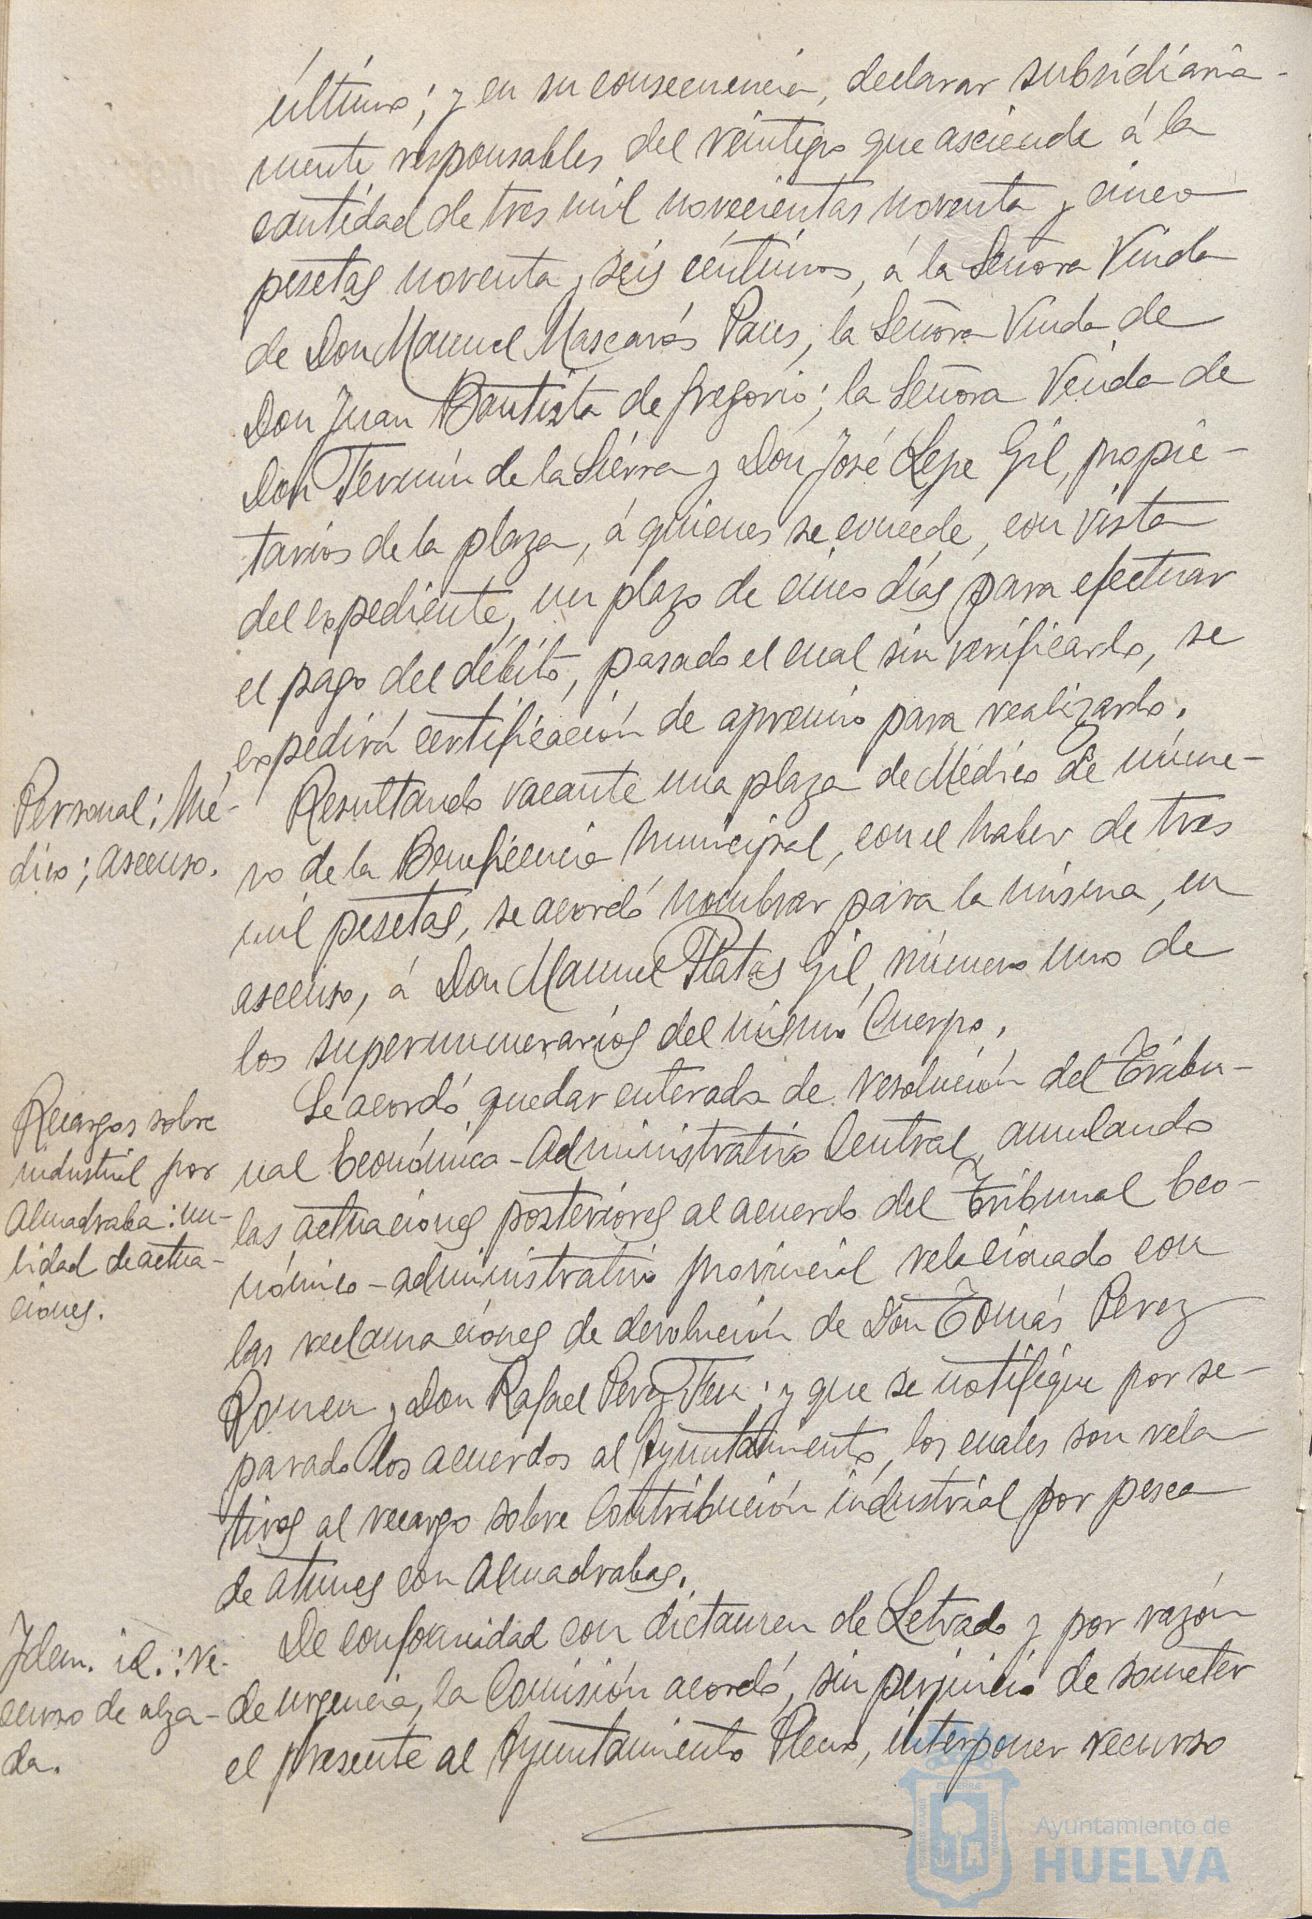 último; y en su consecuencia, declarar subsidiaria-
mente responsables del reintegro que asciende á la
cantidad de tres mil novecientas noventa y cinco
pesetas noventa y seis céntimos, á la Señora Viuda
de Don Manuel Mascarós Paus; la Señora Viuda de
Don Juan Bautista de Gregorio; la Señora Viuda de
Don Fermín de la Sierra y Don José Lepe Gil, propie-
tarios de la plaza, á quienes se concede, con vista
del expediente, un plazo de cinco días para efectuar
el pago del débito, pasado el cual sin verificarlo, se
expedirá certificación de apremio para realizarlo.
Personal: Mé-
dico; ascenso.
Resultando vacante una plaza de Médico de núme-
ro de la Beneficencia Municipal, con el haber de tres
mil pesetas, se acordó nombrar para la misma, en
ascenso, á Don Manuel Platas Gil, número uno de
los supernumerarios del mismo Cuerpo.
Recargos sobre
industrial por
Almadraba: nu-
lidad de actua-
ciones.
Se acordó quedar enterada de resolución del Tribu-
nal Económico-Administrativo Central, anulando
las actuaciones posteriores al acuerdo del Tribunal Eco-
nómico-administrativo provincial relacionado con
las reclamaciones de devolución de Don Tomás Perez
Romeu y Don Rafael Perez Feu; y que se notifique por se-
parado los acuerdos al Ayuntamiento, los cuales son rela
tivos al recargo sobre Contribución industrial por pesca
de atunes con Almadrabas.
Idem. id.: re-
curso de alza-
da.
De conformidad con dictamen de Letrado y por razón
de urgencia, la Comisión acordó, sin perjuicio de someter
el presente al Ayuntamiento Pleno, interponer recurso
Ayuntamiento de
HUELVA